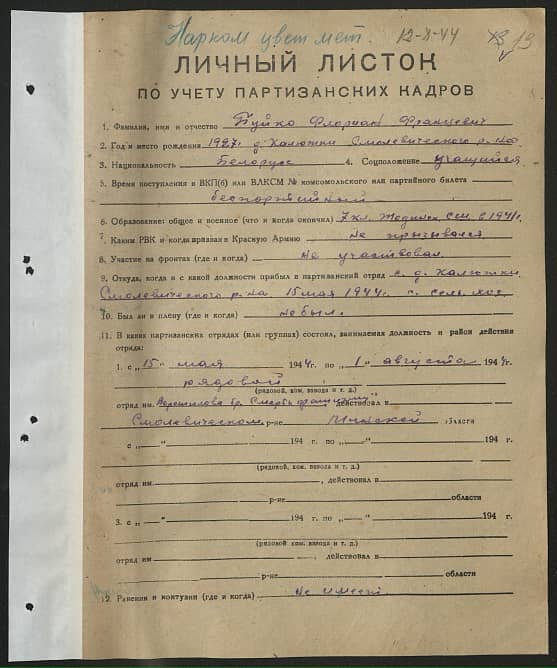 Нарком цвет мет. 12-8-44 19
ЛИЧНЫЙ ЛИСТОК
ПО УЧЕТУ ПАРТИЗАНСКИХ КАДРОВ
1. Фамилия, имя и отчество Буйко Флориан Францевич
2. Год и место рождения 1927г. д. Калюжки Смолевичского р-на
3. Национальность Белорус 4. Соцположение учащийся
5. Время поступления в ВКП(б) или ВЛКСМ № комсомольского или партийного билета
беспартийный
6. Образование: общее и военное (что и когда окончил) 7 кл. в 1941г.
7. Каким РВК и когда призван в Красную Армию не призывался
8. Участие на фронтах (где и когда) не участвовал
9. Откуда, когда и с какой должности прибыл в партизанский отряд с д. Калюжки
Смолевичского р-на 15 мая 1944г. с сель. хоз.
10. Был ли в плену (где и когда) не был.
11. В каких партизанских отрядах (или группах) состоял, занимаемая должность и район действия
отряда:
1. с „15" мая 1944г. по „1" августа 1944г.
рядовой
(рядовой, ком. взвода и т. д.)
отряд им. Ворошилова бр. Смерть фашизму действовал в
Смолевическом р-не Минской области
с „ " 194 г. по „ " 194 г.
(рядовой, ком. взвода и т. д.)
отряд им. , действовал в
р-не области
3. с „ " 194 г. по „ " 194 г.
(рядовой ком. взвода и т. д.)
отряд им. , действовал в
р-не области
12. Ранения и контузии (где и когда) не имеет